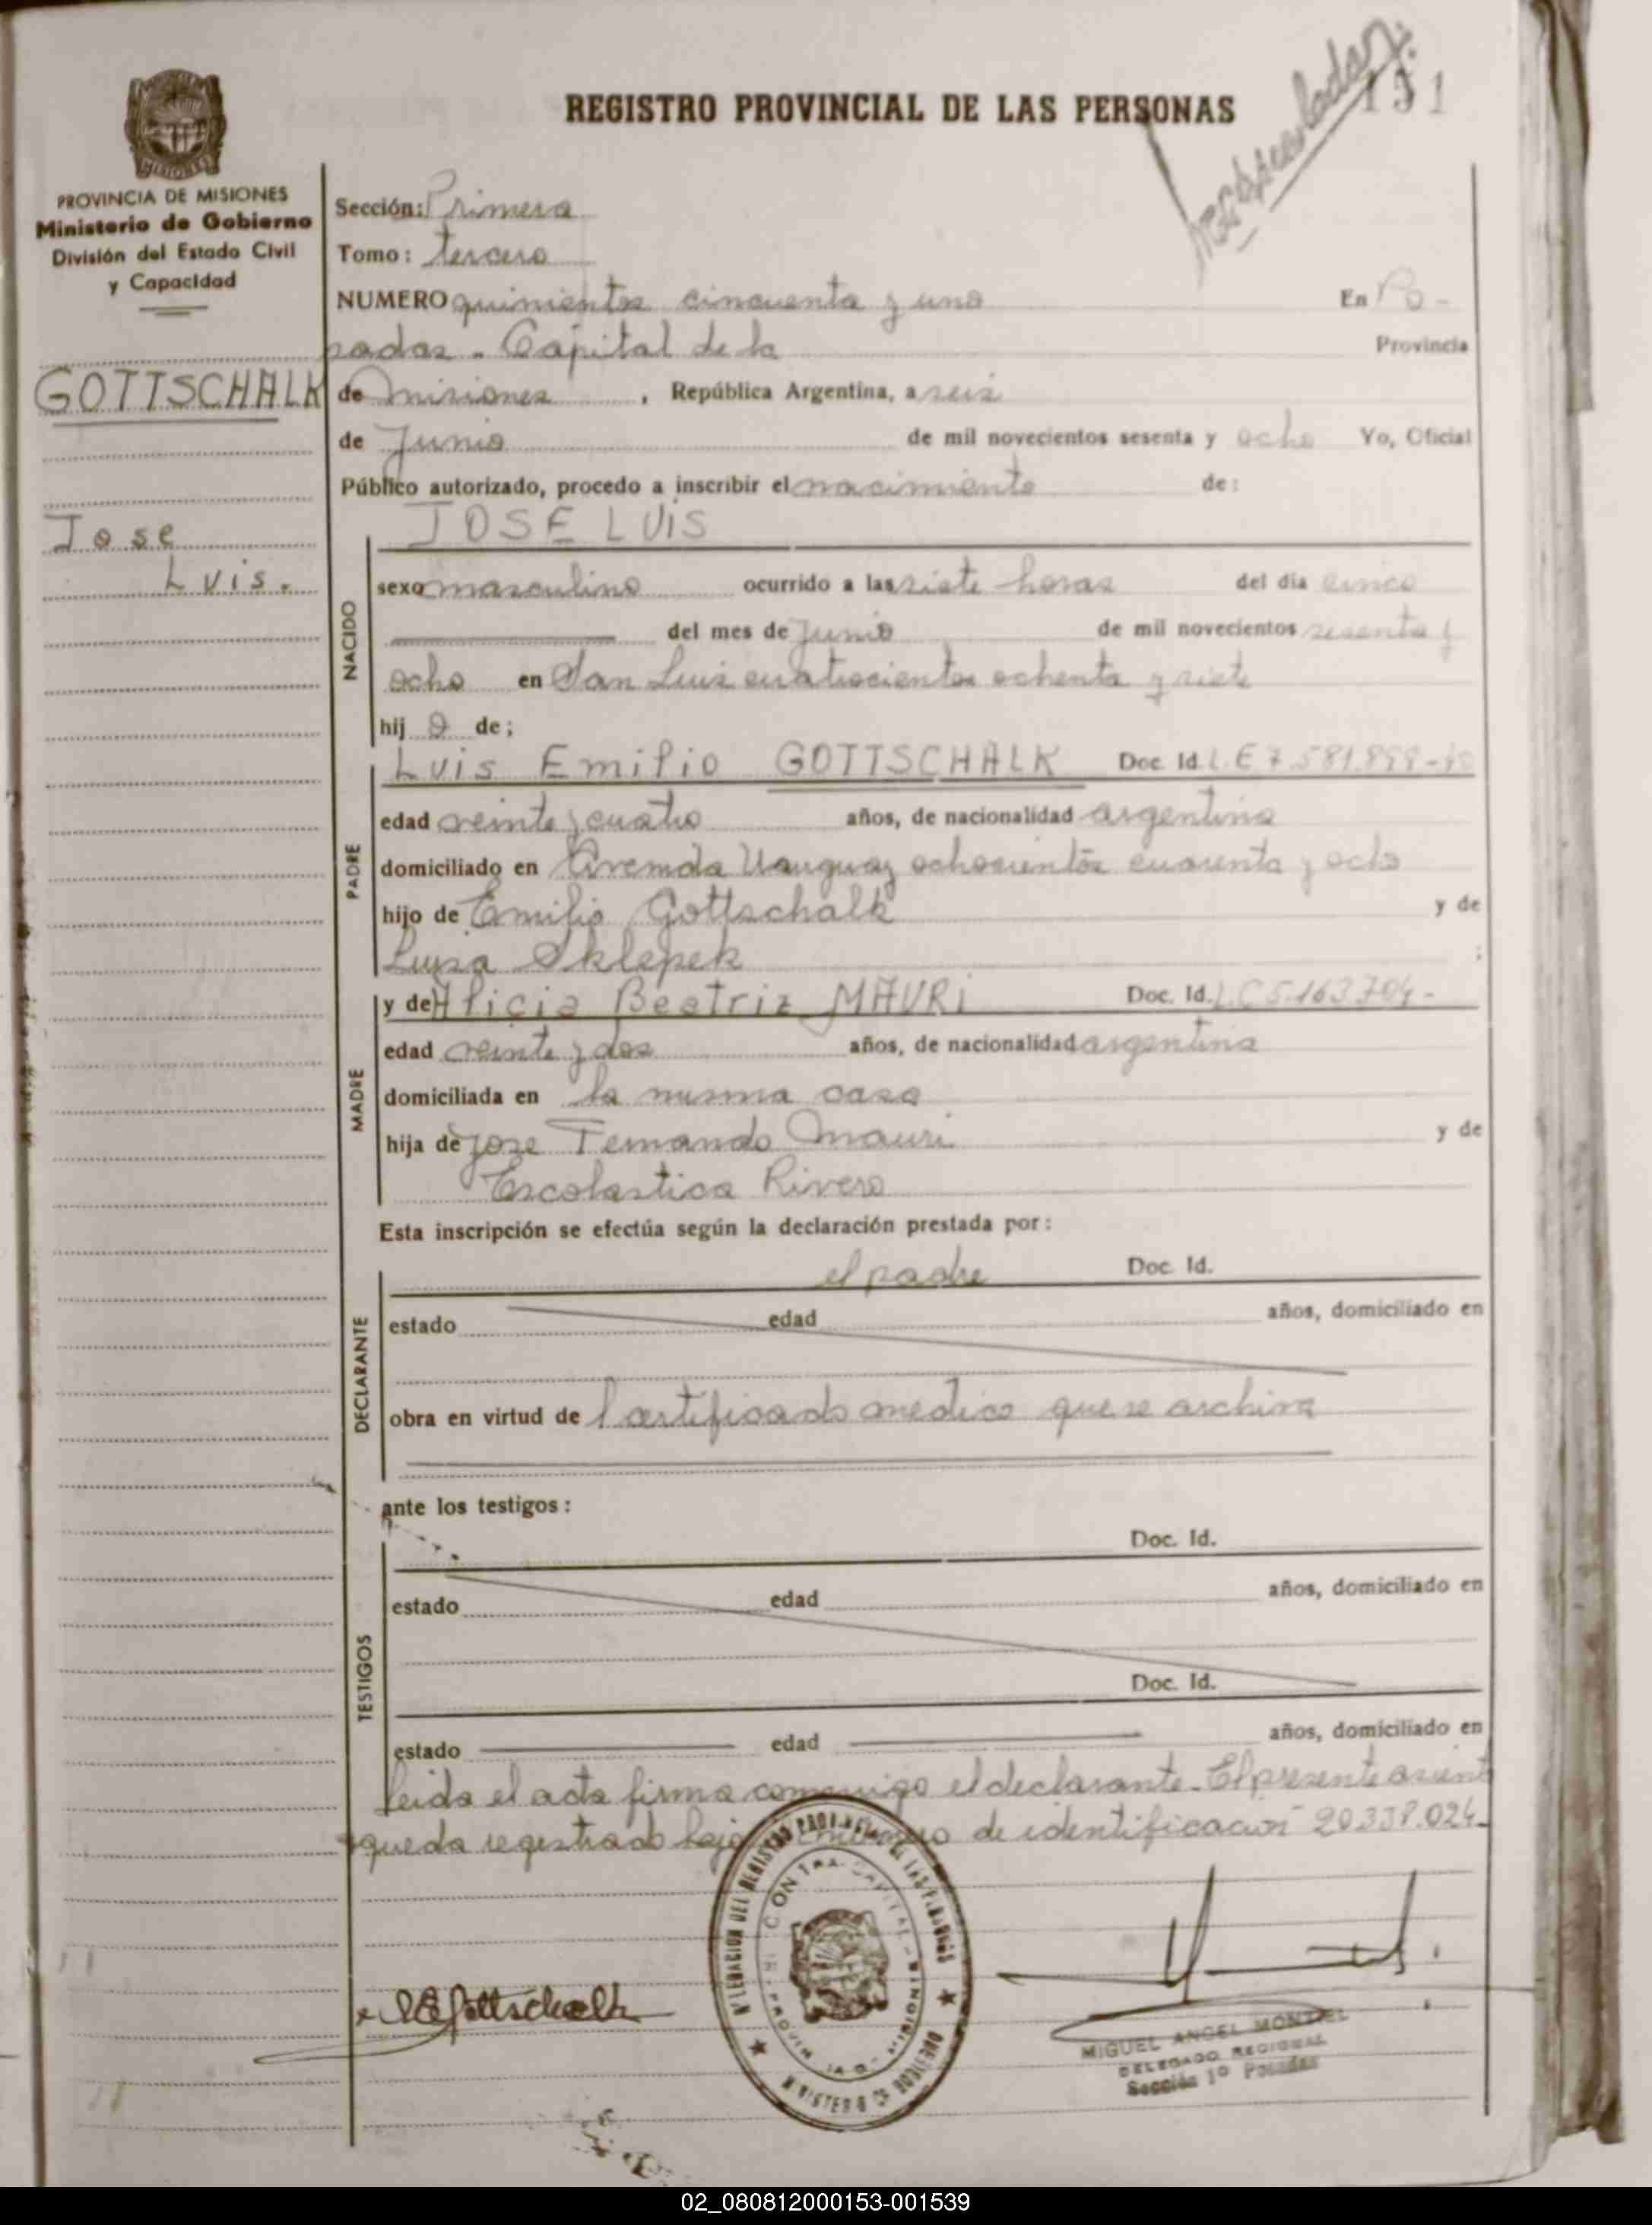 REGISTRO PROVINCIAL DE LAS PERSONAS
151
MISIONES
PROVINCIA DE MISIONES
Ministerio de Gobierno
División del Estado Civil
y Capacidad
GOTTSCHALK
Jose
Luis.
Sección: Primera
Tomo: tercero
NUMERO quinientos cincuenta y uno En Po-
sadas - Capital de la Provincia
de Misiones, República Argentina, a seis
de Junio de mil novecientos sesenta y ocho Yo, Oficial
Público autorizado, procedo a inscribir el nacimiento de:
JOSE LUIS
NACIDO
sexo masculino ocurrido a las siete horas del día cinco
del mes de Junio de mil novecientos sesenta y
ocho en San Luis cuatrocientos ochenta y siete
hij o de;
PADRE
Luis Emilio GOTTSCHALK Doc. Id. L.E 7.581.
edad veinte y cuatro años, de nacionalidad argentina
domiciliado en Avenida Uruguay ochocientos cuarenta y ocho
hijo de Emilio Gottschalk y de
Luisa Sklepek ;
MADRE
y de Alicia Beatriz MAURI Doc. Id. L.C 5.163.704-
edad veinte y dos años, de nacionalidad argentina
domiciliada en la misma casa
hija de Jose Fernando Mauri y de
Escolastica Rivero
Esta inscripción se efectúa según la declaración prestada por:
DECLARANTE
el padre Doc. Id.
estado edad años, domiciliado en
obra en virtud de certificado medico que se archiva
ante los testigos:
TESTIGOS
Doc. Id.
estado edad años, domiciliado en
Doc. Id.
estado edad años, domiciliado en
Leida el acta firma conmigo el declarante - El presente asient
o queda registrado bajo numero de identificación 20.338.024-
DELEGACION DEL REGISTRO PROVINCIAL DE LAS PERSONAS
MINISTERIO DE GOBIERNO
LEGottschalk
MIGUEL ANGEL MONTIEL
DELEGADO REGIONAL
Sección 1º Posadas
02_080812000153-001539